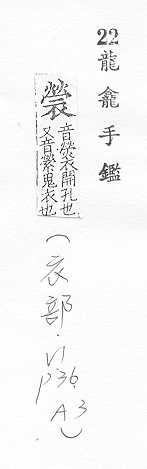 22 龍龕手鑑
褮
音熒衣開孔也
又音縈鬼衣也
(衣部. VI
p36.
A3)